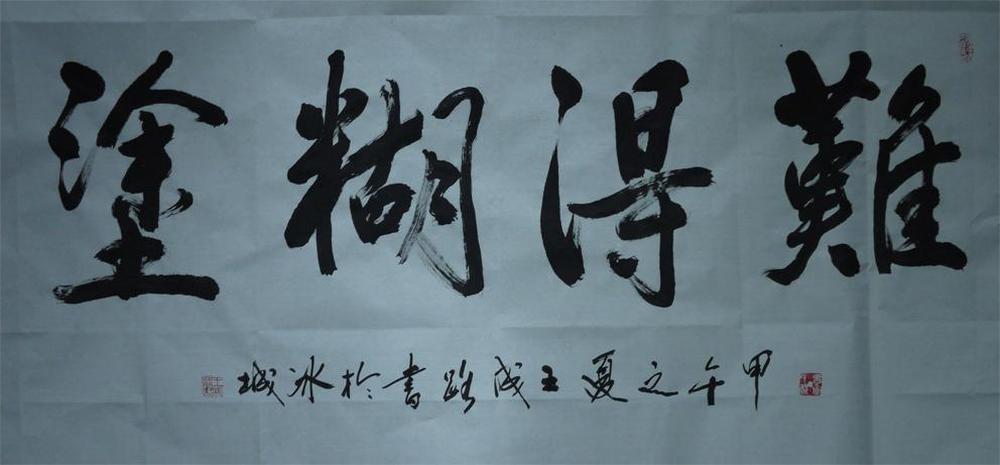 難得糊塗
甲午之夏王成路書於冰城